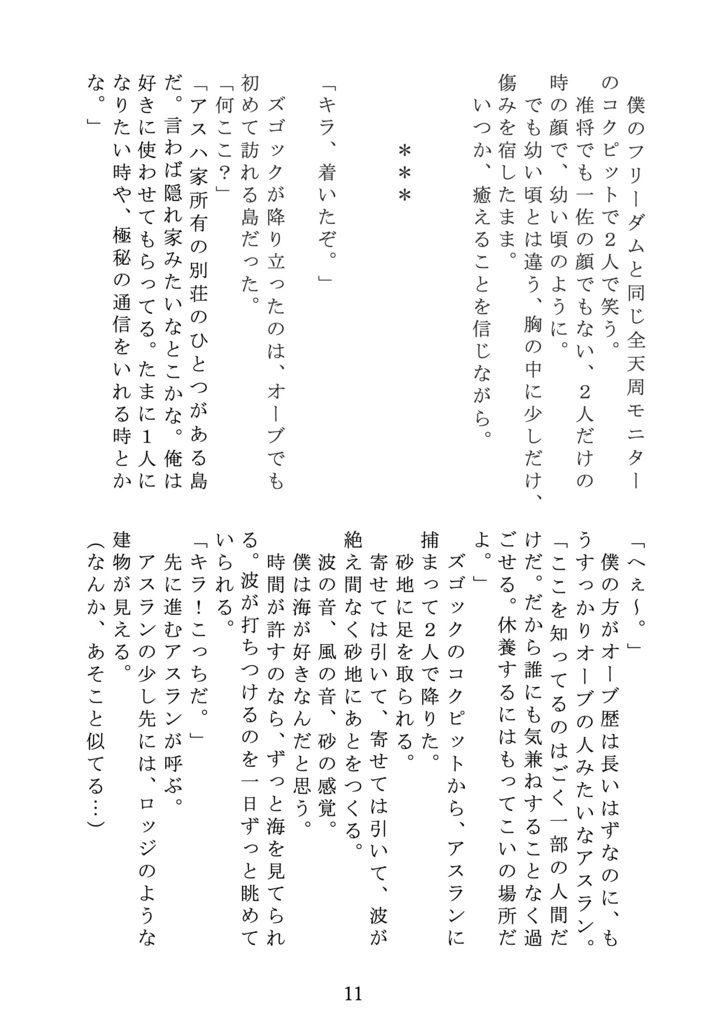 僕のフリーダムと同じ全天周モニター
のコクピットで２人で笑う。
　准将でも一佐の顔でもない、２人だけの
時の顔で、幼い頃のように。
　でも幼い頃とは違う、胸の中に少しだけ、
傷みを宿したまま。
　いつか、癒えることを信じながら。
＊＊＊
「キラ、着いたぞ。」
　ズゴックが降り立ったのは、オーブでも
初めて訪れる島だった。
「何ここ？」
「アスハ家所有の別荘のひとつがある島
だ。言わば隠れ家みたいなとこかな。俺は
好きに使わせてもらってる。たまに１人に
なりたい時や、極秘の通信をいれる時とか
な。」
「へぇ～。」
　僕の方がオーブ歴は長いはずなのに、も
うすっかりオーブの人みたいなアスラン。
「ここを知ってるのはごく一部の人間だ
けだ。だから誰にも気兼ねすることなく過
ごせる。休養するにはもってこいの場所だ
よ。」
　ズゴックのコクピットから、アスランに
捕まって２人で降りた。
　砂地に足を取られる。
　寄せては引いて、寄せては引いて、波が
絶え間なく砂地にあとをつくる。
　波の音、風の音、砂の感覚。
　僕は海が好きなんだと思う。
　時間が許すのなら、ずっと海を見てられ
る。波が打ちつけるのを一日ずっと眺めて
いられる。
「キラ！こっちだ。」
　先に進むアスランが呼ぶ。
　アスランの少し先には、ロッジのような
建物が見える。
（なんか、あそこと似てる…）
11